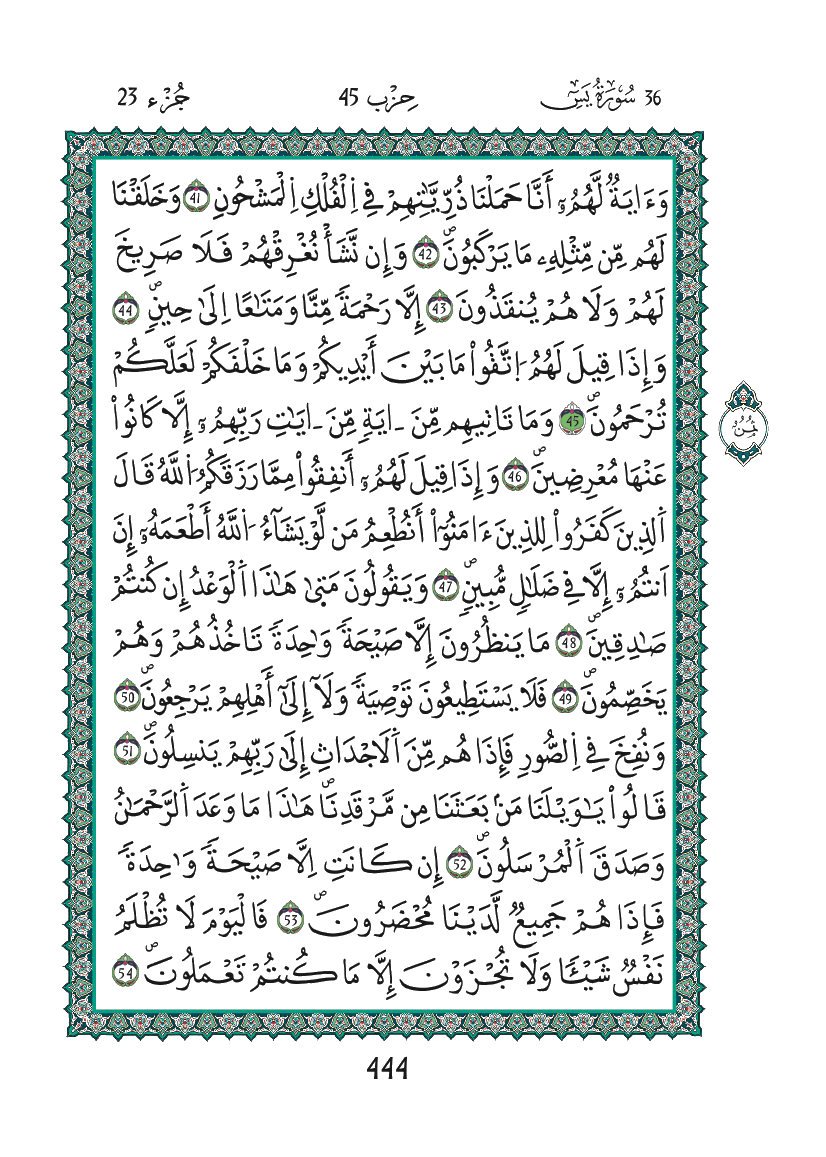 36 سُورَةُ يَسٓ حِزْب 45 جُزْء 23
وَءَايَةٞ لَّهُمُۥٓ أَنَّا حَمَلْنَا ذُرِّيَّٰتِهِمْ فِے اِ۬لْفُلْكِ اِ۬لْمَشْحُونِ 41 وَخَلَقْنَا
لَهُم مِّن مِّثْلِهِۦ مَا يَرْكَبُونَۖ 42 وَإِن نَّشَأْ نُغْرِقْهُمْ فَلَا صَرِيخَ
لَهُمْ وَلَا هُمْ يُنقَذُونَ 43 إِلَّا رَحْمَةٗ مِّنَّا وَمَتَٰعاً اِلَىٰ حِينٖۖ 44
وَإِذَا قِيلَ لَهُمُ اُ۪تَّقُواْ مَا بَيْنَ أَيْدِيكُمْ وَمَا خَلْفَكُمْ لَعَلَّكُمْ
تُرْحَمُونَۖ 45 وَمَا تَاتِيهِم مِّنَ ـايَةٖ مِّنَ ـايَٰتِ رَبِّهِمُۥٓ إِلَّا كَانُواْ
عَنْهَا مُعْرِضِينَۖ 46 وَإِذَا قِيلَ لَهُمُۥٓ أَنفِقُواْ مِمَّا رَزَقَكُمُ اُ۬للَّهُ قَالَ
اَ۬لذِينَ كَفَرُواْ لِلذِينَ ءَامَنُوٓاْ أَنُطْعِمُ مَن لَّوْ يَشَآءُ اُ۬للَّهُ أَطْعَمَهُۥٓ إِنَ
اَنتُمُۥٓ إِلَّا فِے ضَلَٰلٖ مُّبِينٖۖ 47 وَيَقُولُونَ مَتَىٰ هَٰذَا اَ۬لْوَعْدُ إِن كُنتُمْ
صَٰدِقِينَۖ 48 مَا يَنظُرُونَ إِلَّا صَيْحَةٗ وَٰحِدَةٗ تَاخُذُهُمْ وَهُمْ
يَخَصِّمُونَۖ 49 فَلَا يَسْتَطِيعُونَ تَوْصِيَةٗ وَلَآ إِلَىٰٓ أَهْلِهِمْ يَرْجِعُونَۖ 50
وَنُفِخَ فِے اِ۬لصُّورِ فَإِذَا هُم مِّنَ اَ۬لَاجْدَاثِ إِلَىٰ رَبِّهِمْ يَنسِلُونَۖ 51
قَالُواْ يَٰوَيْلَنَا مَنۢ بَعَثَنَا مِن مَّرْقَدِنَاۖ هَٰذَا مَا وَعَدَ اَ۬لرَّحْمَٰنُ
وَصَدَقَ اَ۬لْمُرْسَلُونَۖ 52 إِن كَانَتِ اِلَّا صَيْحَةٗ وَٰحِدَةٗ
فَإِذَا هُمْ جَمِيعٞ لَّدَيْنَا مُحْضَرُونَۖ 53 فَالْيَوْمَ لَا تُظْلَمُ
نَفْسٞ شَيْـٔاٗ وَلَا تُجْزَوْنَ إِلَّا مَا كُنتُمْ تَعْمَلُونَۖ 54
ثُمُنُ
444